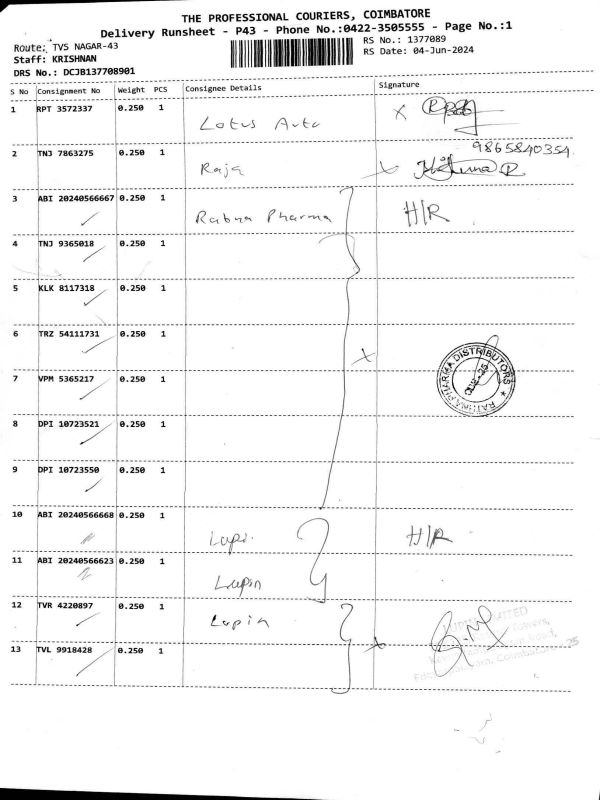 THE PROFESSIONAL COURIERS, COIMBATORE
Delivery Runsheet - P43 - Phone No.:0422-3505555 - Page No.:1
Route: TVS NAGAR-43
RS No.: 1377089
Staff: KRISHNAN
RS Date: 04-Jun-2024
DRS No.: DCJB137708901
S No Consignment No Weight PCS Consignee Details Signature
1 RPT 3572337 0.250 1 Lotus Auto
9865840354
2 TNJ 7863275 0.250 1 Raja
3 ABI 20240566667 0.250 1 Pharma H/R
4 TNJ 9365018 0.250 1
5 KLK 8117318 0.250 1
6 TRZ 54111731 0.250 1
7 VPM 5365217 0.250 1
RATHNA PHARMA DISTRIBUTORS
8 DPI 10723521 0.250 1
9 DPI 10723550 0.250 1
10 ABI 20240566668 0.250 1 Lupi. H/R
11 ABI 20240566623 0.250 1 Lupin
12 TVR 4220897 0.250 1 Lupin
13 TVL 9918428 0.250 1